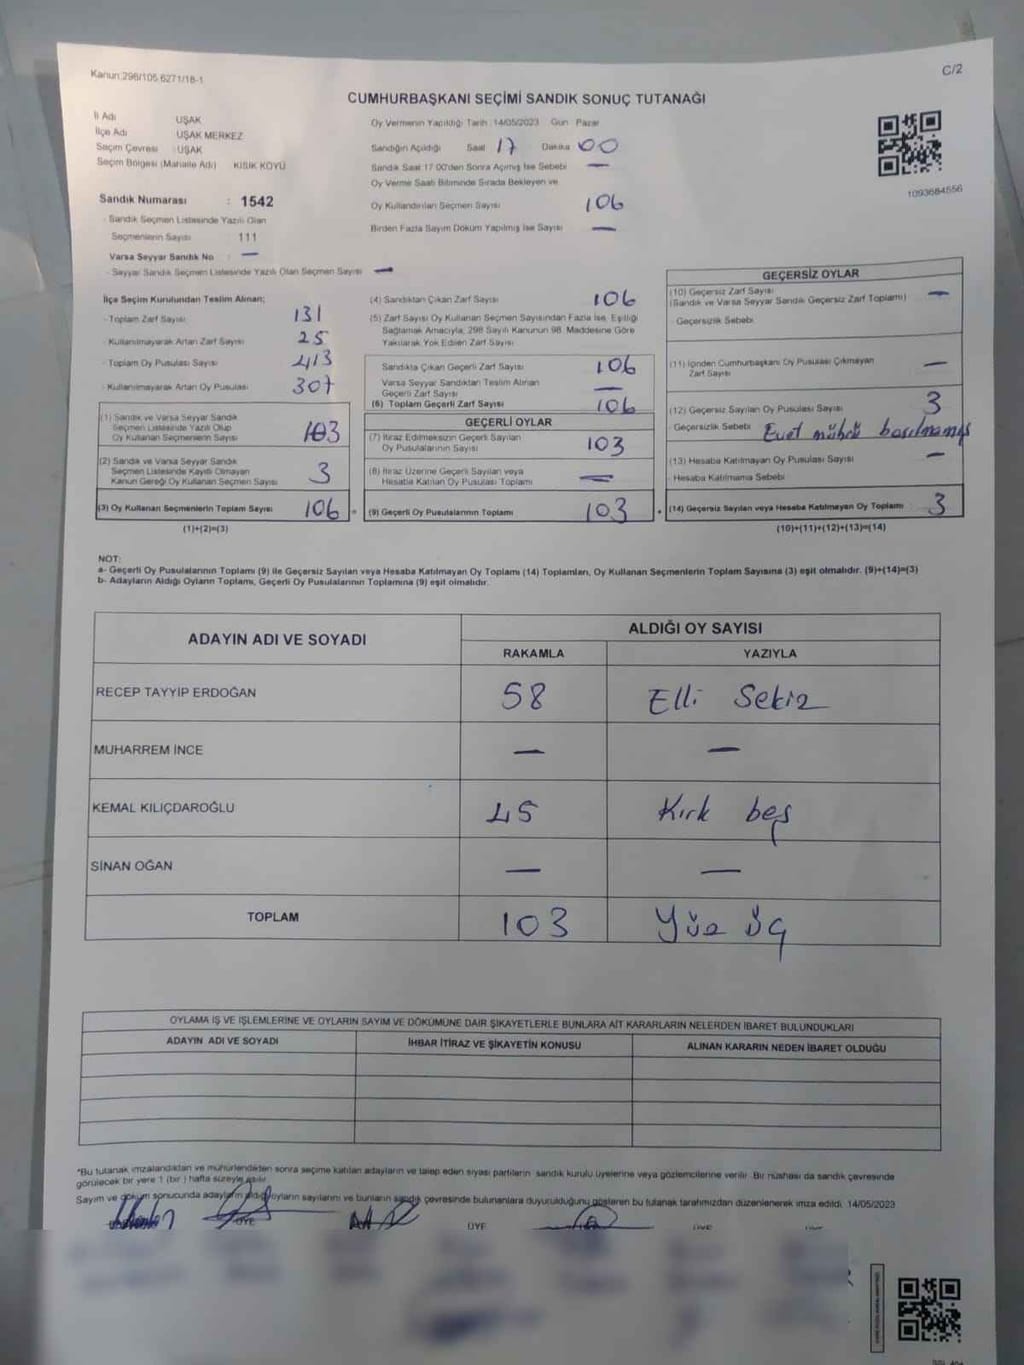 Kanun:298/105.6271/18-1
C/2
CUMHURBAŞKANI SEÇİMİ SANDIK SONUÇ TUTANAĞI
İl Adı UŞAK
İlçe Adı UŞAK MERKEZ
Seçim Çevresi : UŞAK
Seçim Bölgesi (Mahalle Adı) KISIK KÖYÜ
Sandık Numarası : 1542
- Sandık Seçmen Listesinde Yazılı Olan
Seçmenlerin Sayısı : 111
Varsa Seyyar Sandık No : —
- Seyyar Sandık Seçmen Listesinde Yazılı Olan Seçmen Sayısı —
Oy Vermenin Yapıldığı Tarih :14/05/2023 Gün Pazar
Sandığın Açıldığı Saat 17 Dakika 00
Sandık Saat 17:00'den Sonra Açılmış İse Sebebi —
Oy Verme Saati Bitiminde Sırada Bekleyen ve
Oy Kullandırılan Seçmen Sayısı 106
Birden Fazla Sayım Döküm Yapılmış İse Sayısı —
1093684556
İlçe Seçim Kurulundan Teslim Alınan;
- Toplam Zarf Sayısı 131
- Kullanılmayarak Artan Zarf Sayısı 25
- Toplam Oy Pusulası Sayısı 413
- Kullanılmayarak Artan Oy Pusulası 307
(1) Sandık ve Varsa Seyyar Sandık
Seçmen Listesinde Yazılı Olup
Oy Kullanan Seçmenlerin Sayısı 103
(2) Sandık ve Varsa Seyyar Sandık
Seçmen Listesinde Kayıtlı Olmayan
Kanun Gereği Oy Kullanan Seçmen Sayısı 3
(3) Oy Kullanan Seçmenlerin Toplam Sayısı 106
(1)+(2)=(3)
(4) Sandıktan Çıkan Zarf Sayısı 106
(5) Zarf Sayısı Oy Kullanan Seçmen Sayısından Fazla İse, Eşitliği
Sağlamak Amacıyla; 298 Sayılı Kanunun 98. Maddesine Göre
Yakılarak Yok Edilen Zarf Sayısı
Sandıkta Çıkan Geçerli Zarf Sayısı 106
Varsa Seyyar Sandıktan Teslim Alınan
Geçerli Zarf Sayısı —
(6) Toplam Geçerli Zarf Sayısı 106
GEÇERLİ OYLAR
(7) İtiraz Edilmeksizin Geçerli Sayılan
Oy Pusulalarının Sayısı 103
(8) İtiraz Üzerine Geçerli Sayılan veya
Hesaba Katılan Oy Pusulası Toplamı —
(9) Geçerli Oy Pusulalarının Toplamı 103
GEÇERSİZ OYLAR
(10) Geçersiz Zarf Sayısı —
(Sandık ve Varsa Seyyar Sandık Geçersiz Zarf Toplamı)
- Geçersizlik Sebebi
(11) İçinden Cumhurbaşkanı Oy Pusulası Çıkmayan
Zarf Sayısı —
(12) Geçersiz Sayılan Oy Pusulası Sayısı 3
Geçersizlik Sebebi Evet mührü basılmamış
(13) Hesaba Katılmayan Oy Pusulası Sayısı —
- Hesaba Katılmama Sebebi
(14) Geçersiz Sayılan veya Hesaba Katılmayan Oy Toplamı 3
(10)+(11)+(12)+(13)=(14)
NOT:
a- Geçerli Oy Pusulalarının Toplamı (9) ile Geçersiz Sayılan veya Hesaba Katılmayan Oy Toplamı (14) Toplamları, Oy Kullanan Seçmenlerin Toplam Sayısına (3) eşit olmalıdır. (9)+(14)=(3)
b- Adayların Aldığı Oyların Toplamı, Geçerli Oy Pusulalarının Toplamına (9) eşit olmalıdır.
ADAYIN ADI VE SOYADI
ALDIĞI OY SAYISI
RAKAMLA YAZIYLA
RECEP TAYYİP ERDOĞAN 58 Elli Sekiz
MUHARREM İNCE — —
KEMAL KILIÇDAROĞLU 45 Kırk beş
SİNAN OĞAN — —
TOPLAM 103 Yüz üç
OYLAMA İŞ VE İŞLEMLERİNE VE OYLARIN SAYIM VE DÖKÜMÜNE DAİR ŞİKAYETLERLE BUNLARA AİT KARARLARIN NELERDEN İBARET BULUNDUKLARI
ADAYIN ADI VE SOYADI İHBAR İTİRAZ VE ŞİKAYETİN KONUSU ALINAN KARARIN NEDEN İBARET OLDUĞU
*Bu tutanak imzalandıktan ve mühürlendikten sonra seçime katılan adayların ve talep eden siyasi partilerin sandık kurulu üyelerine veya gözlemcilerine verilir. Bir nüshası da sandık çevresinde
görülecek bir yere 1 (bir) hafta süreyle asılır.
Sayım ve döküm sonucunda adayların aldığı oyların sayılarını ve bunların sandık çevresinde bulunanlara duyurulduğunu gösteren bu tutanak tarafımızdan düzenlenerek imza edildi. 14/05/2023
ÜYE ÜYE ÜYE